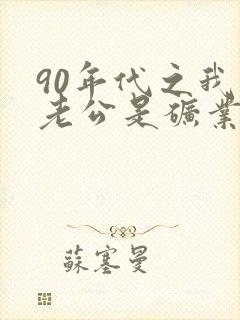 90年代之我
老公是礦業
蘇塞曼